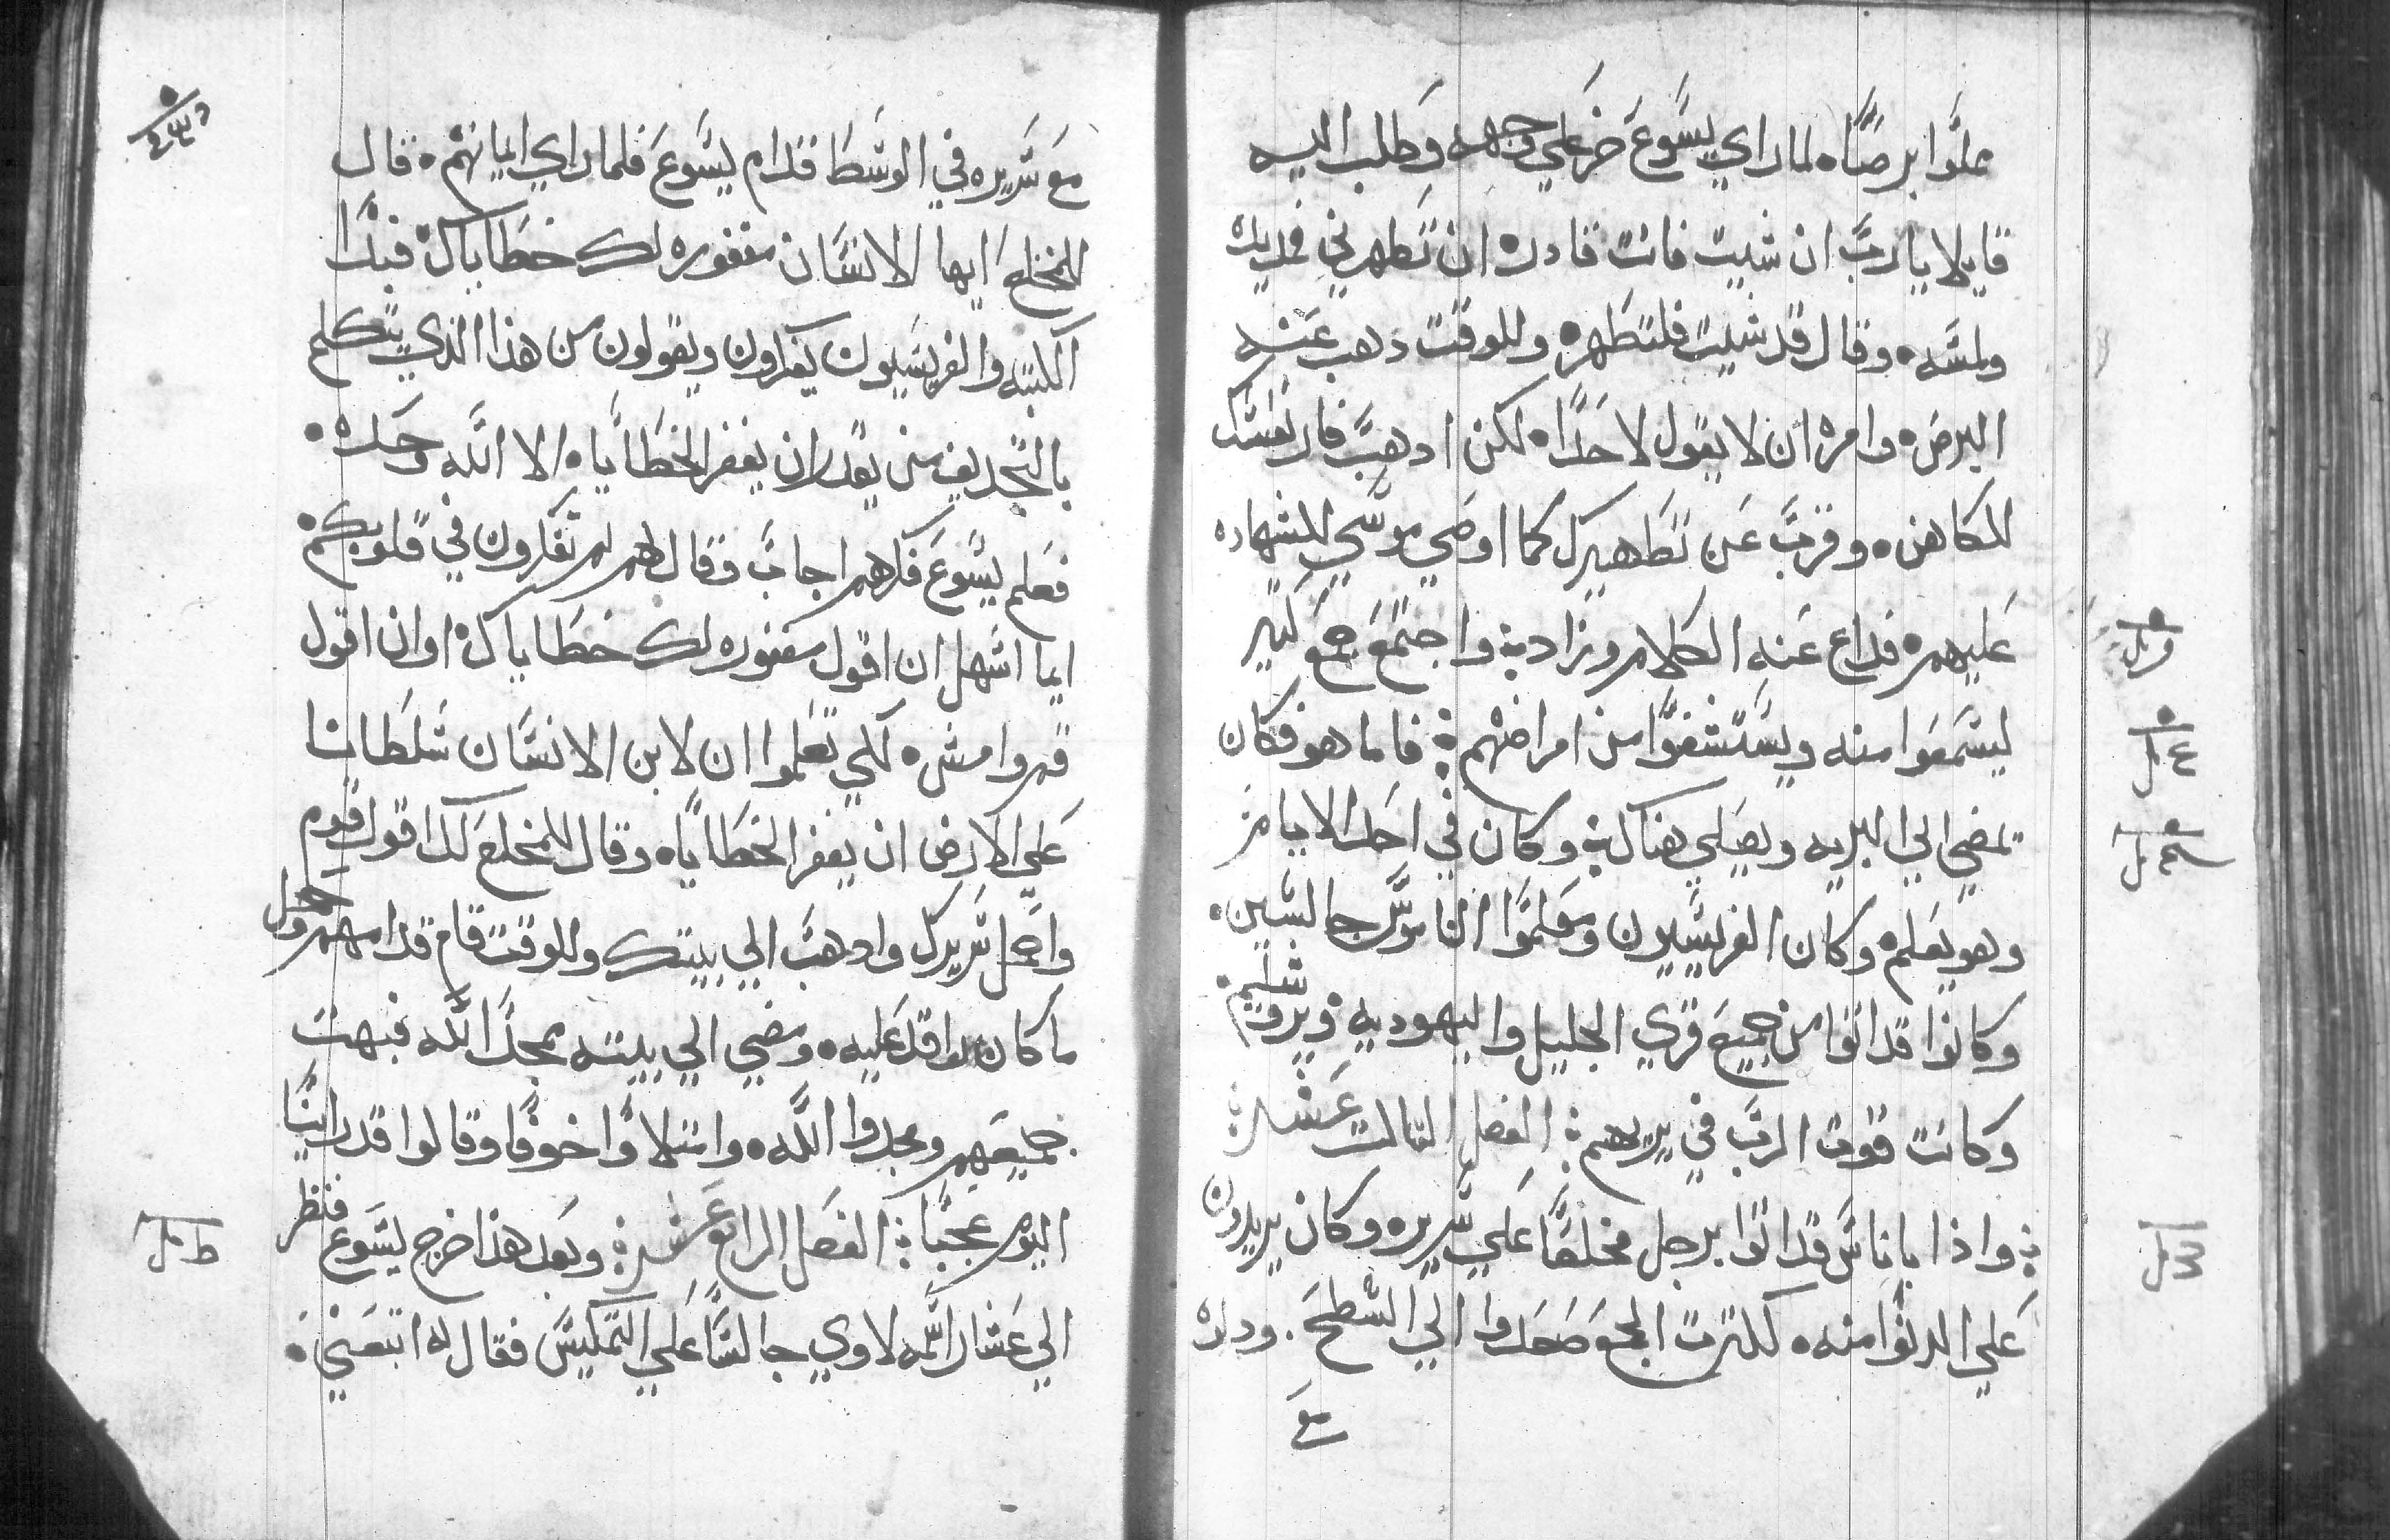 ملوا برصًا ه لما راي يسوع خر علي وجهه وطلب اليه
قايلا يا رب ان شيت فانت قادر ه ان تطهرني فمد يده
ولمسه ه وقال قد شيت فلتطهر ه وللوقت ذهب عنه
البرص ه وامره ان لا يقول لاحدًا ه لكن ادهب فار نفسك
للكاهن ه وقرب عن تطهيرك كما اوصي موسي للشهاده
عليهم ه فداع عنه الكلام وزاد ÷ واجتمع جمع كثير
ليسمعوا منه ويستشفوا من امراضهم ÷ فاما هو فكان
يمضي الي البريه ويصلي هناك ÷ وكان في احد الايام
وهو يعلم ه وكان الفريسيون ومعلموا الناموس جالسين ه
وكانوا قد اتوا من جميع قري الجليل واليهوديه ويروشليم ه
وكانت قوت الرب في بريهم ÷ الفصل التالت عشر ÷
÷ واذا باناس قد اتوا برجل مخلعًا علي سريره وكان يريدون
علي الدنوا منه ه لكترت الجمع صعدوا الي السطح . ودلوه
مع
مع سريره في الوسط قدام يسوع فلما راي ايمانهم ه قال
للمخلع ايها الانسان مغفوره لك خطاياك ه فبدا
الكتبه والفريسيون يفكرون ويقولون من هذا الذي يتكلم
بالتجديف من يقدر ان يغفر الخطايا ه الا الله وحده ه
فعلم يسوع فكرهم اجاب وقال لهم لم تفكرون في قلوبكم ه
ايما اسهل ان اقول مغفوره لك خطاياك ه او ان اقول
قم وامش ه لكي تعلموا ان لابن الانسان سلطانا
علي الارض ان يغفر الخطايا ه وقال للمخلع لك اقول قوم
واحمل سريرك وادهب الي بيتك وللوقت قام قدامهم وحمل
ما كان راقد عليه ه ومضي الي بيته يمجد الله فبهت
جميعهم ومجدوا الله ه وامتلاوا خوفًا وقالوا قد راينا
اليوم عجبًا ÷ الفصل الرابع عشر ÷ وبعد هذا خرج يسوع فنظر
الي عشار اسمه لاوي جالسًا علي التمكيس فقال له اتبعني ه